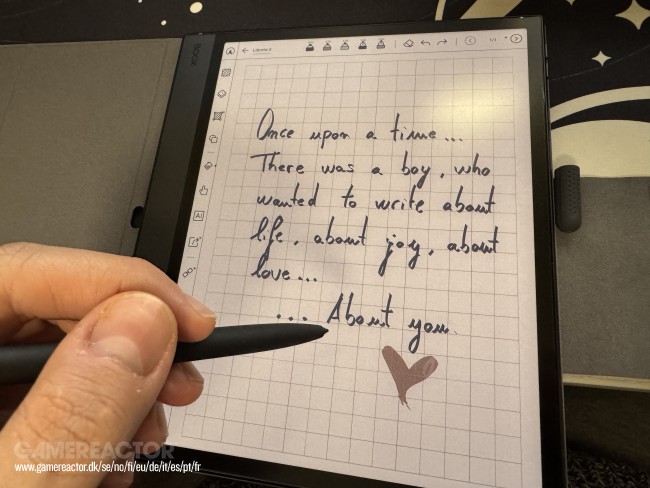 BOOX
Library 3
1/1
AI
Once upon a time...
There was a boy, who
wanted to write about
life, about joy, about
love...
... About you.
GAMEREACTOR
www.gamereactor.dk/se/no/fi/eu/de/it/es/pt/fr